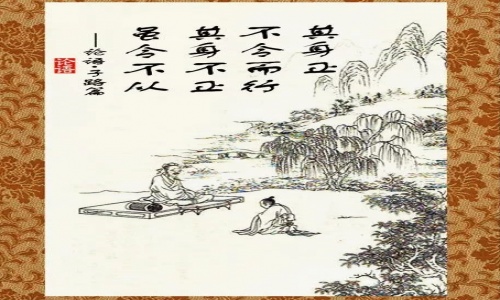 其身正
不令而行
其身不正
虽令不从
——论语·子路篇
论语